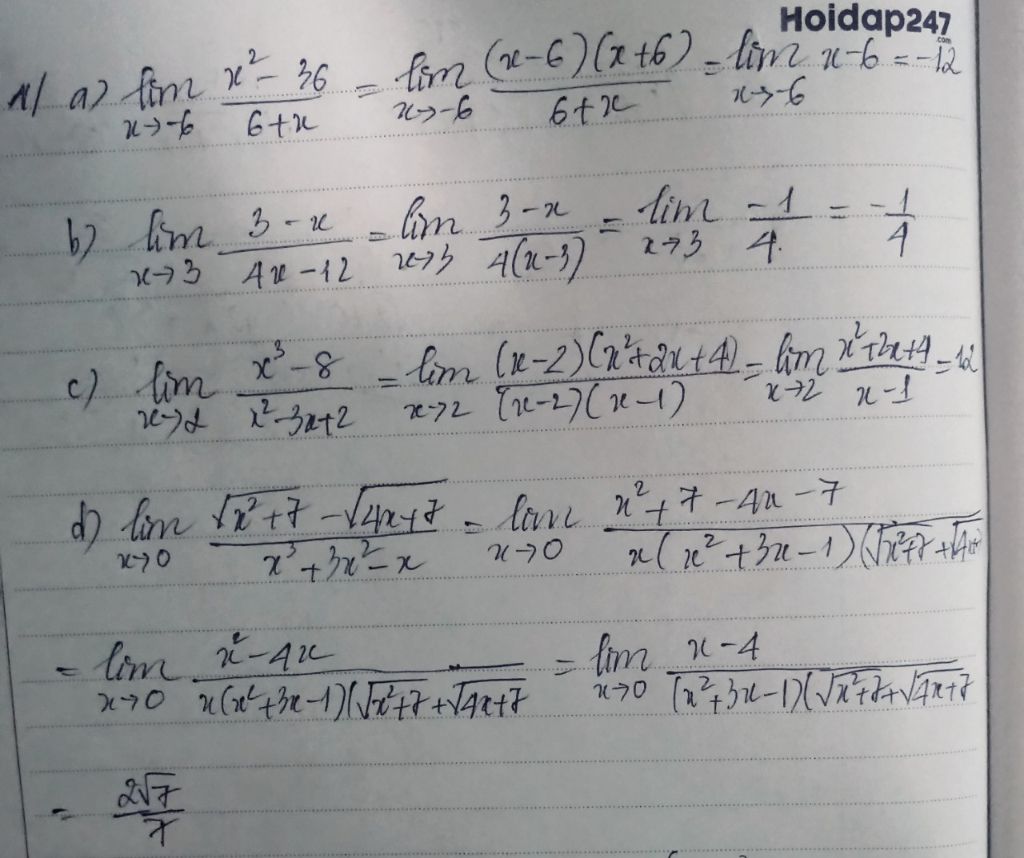 Hoidap247
.com
1/ a) lim x→-6 (x² - 36)/(6+x) = lim x→-6 ((x-6)(x+6))/(6+x) = lim x→-6 x-6 = -12
b) lim x→3 (3-x)/(4x-12) = lim x→3 (3-x)/(4(x-3)) = lim x→3 -1/4 = -1/4
c) lim x→2 (x³-8)/(x²-3x+2) = lim x→2 ((x-2)(x²+2x+4))/((x-2)(x-1)) = lim x→2 (x²+2x+4)/(x-1) = 12
d) lim x→0 (√(x²+7) - √(4x+7))/(x³+3x²-x) = lim x→0 (x²+7-4x-7)/(x(x²+3x-1)(√(x²+7)+√(4x+
= lim x→0 (x²-4x)/(x(x²+3x-1)(√(x²+7)+√(4x+7) = lim x→0 (x-4)/((x²+3x-1)(√(x²+7)+√(4x+7)
= 2√7/7